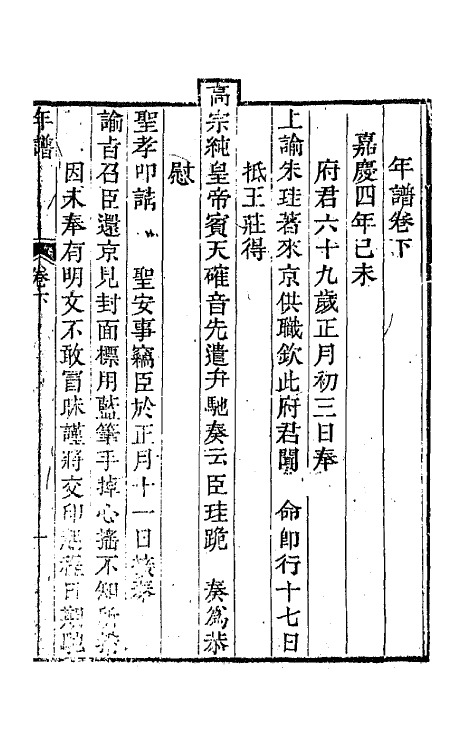 年譜卷下
嘉慶四年己未
府君六十九歲正月初三日奉
上諭朱珪著來京供職欽此府君聞 命即行十七日
抵王莊得
高宗純皇帝賓天確音先遣弁馳奏云臣珪跪 奏爲恭
慰
聖孝叩請 聖安事竊臣於正月十一日接奉
諭旨召臣還京見封面標用藍筆手掉心搖不知所
因未奉有明文不敢冒昧謹將交印起程日期馳
年譜 卷下 一